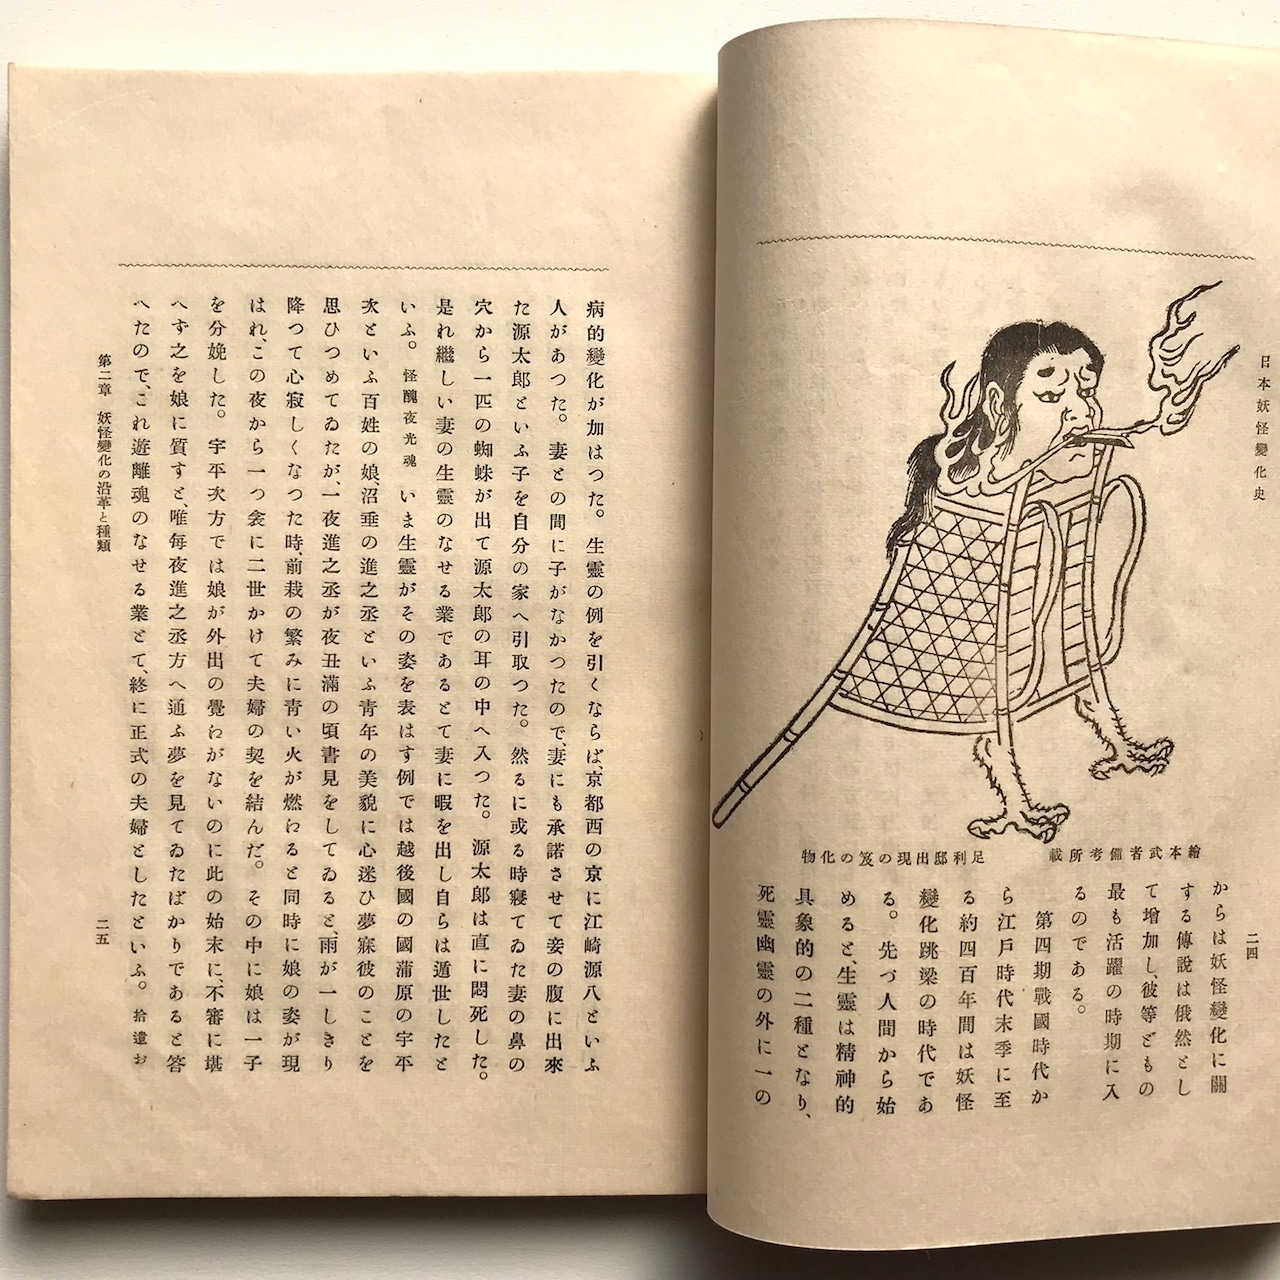 日本妖怪變化史
二四
繪本武者備考所載
足利邸出現の笈の化物
からは妖怪變化に關
する傳說は俄然とし
て增加し、彼等どもの
最も活躍の時期に入
るのである。
第四期戰國時代か
ら江戶時代末季に至
る約四百年間は妖怪
變化跳梁の時代であ
る。先づ人間から始
めると、生靈は精神的
具象的の二種となり、
死靈幽靈の外に一の
病的變化が加はつた。生靈の例を引くならば、京都西の京に江崎源八といふ
人があつた。妻との間に子がなかつたので、妻にも承諾させて妾の腹に出來
た源太郎といふ子を自分の家へ引取つた。然るに或る時寢てゐた妻の鼻の
穴から一匹の蜘蛛が出て源太郎の耳の中へ入つた。源太郎は直に悶死した。
是れ繼しい妻の生靈のなせる業であるとて妻に暇を出し自らは遁世したと
いふ。怪醜夜光魂 いま生靈がその姿を表はす例では越後國の國蒲原の宇平
次といふ百姓の娘、沼垂の進之丞といふ靑年の美貌に心迷ひ夢寐彼のことを
思ひつめてゐたが、一夜進之丞が夜丑滿の頃書見をしてゐると、雨が一しきり
降つて心寂しくなつた時、前栽の繁みに靑い火が燃ゆると同時に娘の姿が現
はれ、この夜から一つ衾に二世かけて夫婦の契を結んだ。その中に娘は一子
を分娩した。宇平次方では娘が外出の覺ゎがないのに此の始末に、不審に堪
へず之を娘に質すと、唯每夜進之丞方へ通ふ夢を見てゐたばかりであると答
へたので、これ遊離魂のなせる業とて、終に正式の夫婦としたといふ。拾遺お
第二章 妖怪變化の沿革と種類
二五